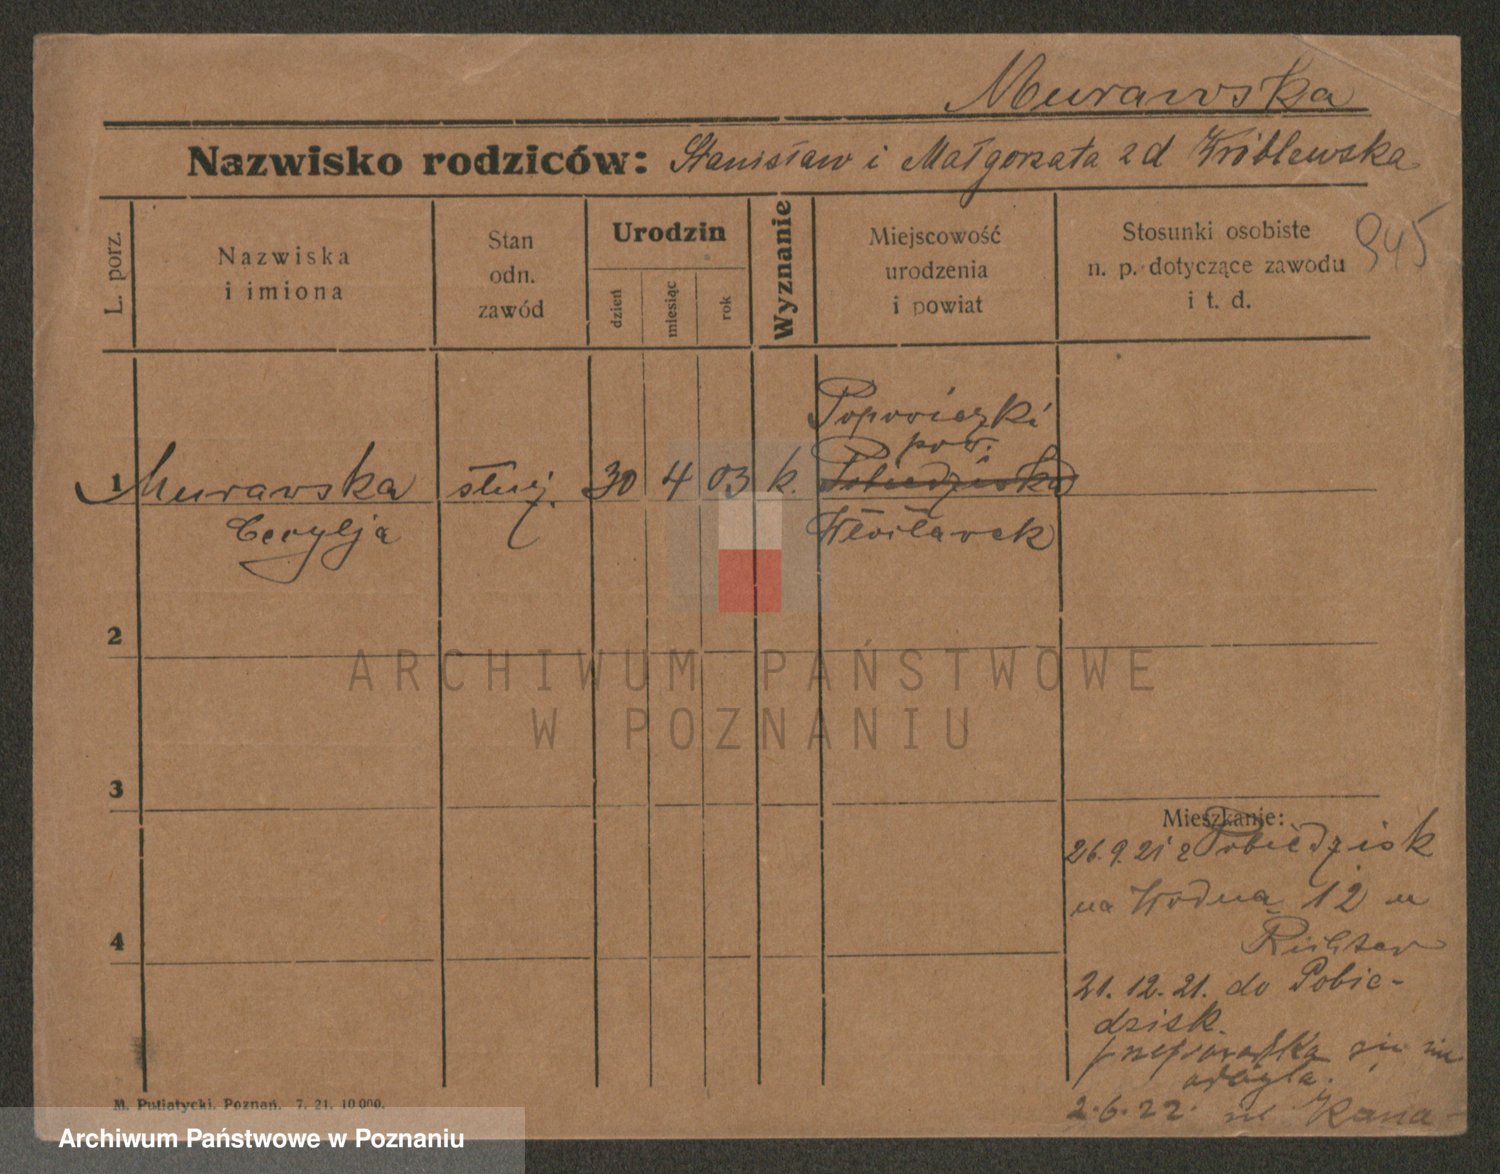 Murawska
Nazwisko rodziców: Stanisław i Małgorzata z d Wróblewska
945
L. porz.
Nazwiska
i imiona
Stan
odn.
zawód
Urodzin
dzień
miesiąc
rok
Wyznanie
Miejscowość
urodzenia
i powiat
Stosunki osobiste
n. p. dotyczące zawodu
i t. d.
Popowiczki
pow.
1 Murawska służ. 30 4 03 k. Pobiedziska
Cecylja Włocławek
2
ARCHIWUM PAŃSTWOWE
W POZNANIU
3
Mieszkanie:
26.9.21 z Pobiedzisk
na Wodna 12 u
Richter
4
21.12.21. do Pobie-
dzisk.
przeprowadzka się nie
odbyła.
2.6.22 Kana-
M. Putiatycki, Poznań. 7. 21. 10000.
Archiwum Państwowe w Poznaniu